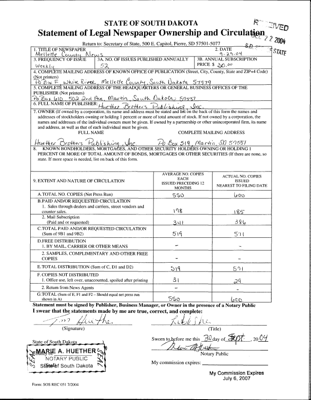 STATE OF SOUTH DAKOTA
Statement of Legal Newspaper Ownership and Circulation
Return to: Secretary of State, 500 E. Capitol, Pierre, SD 57501-5077
1. TITLE OF NEWSPAPER
2. DATE
Mellette County News
3. FREQUENCY OF ISSUE
3A. NO. OF ISSUES PUBLISHED ANNUALLY
3B. ANNUAL SUBSCRIPTION
Weekly
52
PRICE $
4. COMPLETE MAILING ADDRESS OF KNOWN OFFICE OF PUBLICATION (Street, City, County, State and ZIP+4 Code)
(Not printers)
5. COMPLETE MAILING ADDRESS OF THE HEADQUARTERS OR GENERAL BUSINESS OFFICES OF THE
PUBLISHER (Not printers)
6. FULL NAME OF PUBLISHER:
Huether Brothers Publishing, Inc
7. OWNER (If owned by a corporation, its name and address must be stated and also immediately
addresses of stockholders owning or holding 1 percent or more of total amount of stock. If not owned by a corporation, the
names and addresses of the individual owners must be given. If owned by a partnership or other unincorporated firm, its name
and address, as well as that of each individual must be given.
FULL NAME
COMPLETE MAILING ADDRESS
Huether Brothers Publishing, Inc
Martin, SD 57551
8. KNOWN BONDHOLDERS, MORTGAGEES, AND OTHER SECURITY HOLDERS OWNING OR HOLDING 1
PERCENT OR MORE OF TOTAL AMOUNT OF BONDS, MORTGAGES OR OTHER SECURITIES (If there are none, so
state. If more space is needed, list on back of this form.
9. EXTENT AND NATURE OF CIRCULATION
AVERAGE NO. COPIES
EACH
ISSUED PRECEDING 12
MONTHS
ACTUAL NO. COPIES
ISSUED
NEAREST TO FILING DATE
A. TOTAL NO. COPIES (Net Press Run)
550
600
B. PAID AND/OR REQUESTED CIRCULATION
1. Sales through dealers and carriers, street vendors and
counter sales.
178
185
2. Mail Subscription
(Paid and or requested)
341
386
C. TOTAL PAID AND/OR REQUESTED CIRCULATION
(Sum of 9B1 and 9B2)
519
571
D. FREE DISTRIBUTION
1. BY MAIL, CARRIER OR OTHER MEANS
-
-
2. SAMPLES, COMPLIMENTARY AND OTHER FREE
COPIES
-
-
E. TOTAL DISTRIBUTION (Sum of C, D1 and D2)
519
571
F. COPIES NOT DISTRIBUTED
1. Office use, left over, unaccounted, spoiled after printing
31
29
2. Return from News Agents
-
-
G. TOTAL (Sum of E, F1 and F2 - Should equal net press run
shown in A)
550
600
Statement must be signed by Publisher, Business Manager, or Owner in the presence of a Notary Public
I swear that the statements made by me are true, correct, and complete:
(Signature)
(Title)
State of South Dakota
Sworn to before me this 30 day of Sept 2004
MARIE A. HUETHER
NOTARY PUBLIC
State of South Dakota
Notary Public
My commission expires:
My Commission Expires
July 6, 2007